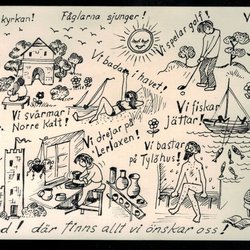 kyrkan!
Fåglarna sjunger!
Vi spelar golf!
Vi badar i havet!
Vi svärmar i
Norre Katt!
Vi fiskar
jättar!
Vi drejar på
Lerlaxen!
Vi bastar
på Tylöhus!
d! där finns allt vi önskar oss!